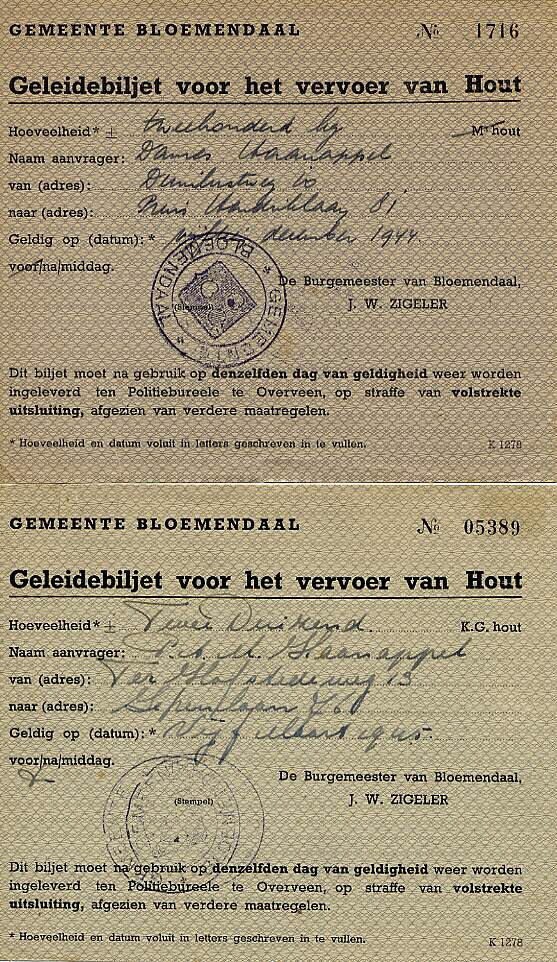 GEMEENTE BLOEMENDAAL № 1716
Geleidebiljet voor het vervoer van Hout
Hoeveelheid* ± tweehonderd kg M³ hout
Naam aanvrager: Dames
van (adres):
naar (adres): 81
Geldig op (datum):* december 1944
voor/na/middag.
BLOEMENDAAL * GEMEENTE *
(Stempel)
De Burgemeester van Bloemendaal,
J. W. ZIGELER
Dit biljet moet na gebruik op denzelfden dag van geldigheid weer worden
ingeleverd ten Politiebureele te Overveen, op straffe van volstrekte
uitsluiting, afgezien van verdere maatregelen.
* Hoeveelheid en datum voluit in letters geschreven in te vullen. K 1278
GEMEENTE BLOEMENDAAL № 05389
Geleidebiljet voor het vervoer van Hout
Hoeveelheid* ± Twee Duizend K.G. hout
Naam aanvrager: M.
van (adres): Ter Hofstedeweg 13
naar (adres):
Geldig op (datum):* Vijf Maart 1945.
voor/na/middag.
De Burgemeester van Bloemendaal,
(Stempel)
J. W. ZIGELER
Dit biljet moet na gebruik op denzelfden dag van geldigheid weer worden
ingeleverd ten Politiebureele te Overveen, op straffe van volstrekte
uitsluiting, afgezien van verdere maatregelen.
* Hoeveelheid en datum voluit in letters geschreven in te vullen. K 1278